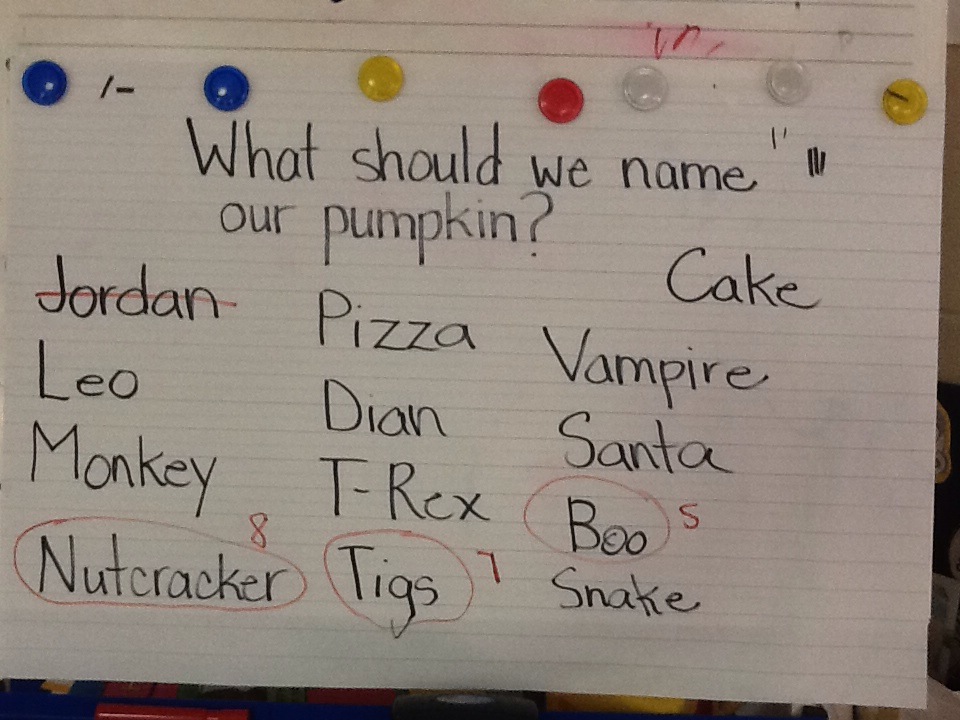 What should we name
our pumpkin?
Jordan
Leo
Monkey
Nutcracker 8
Pizza
Dian
T-Rex
Tigs 7
Cake
Vampire
Santa
Boo 5
Snake